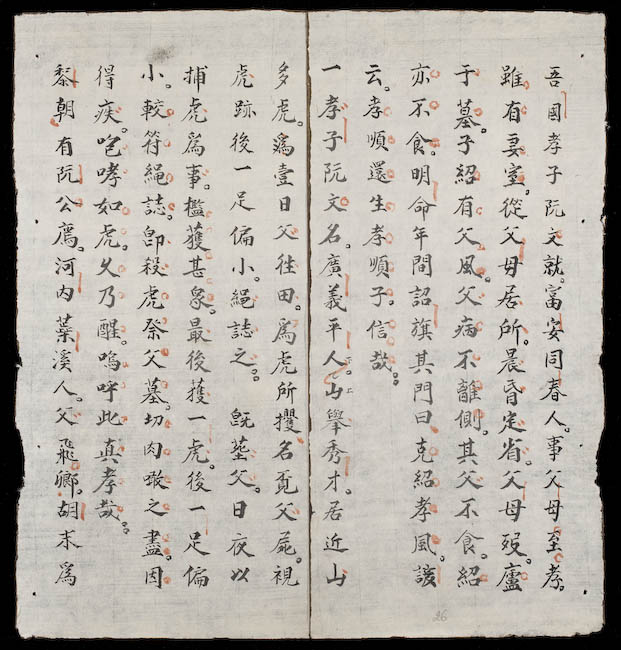 吾國孝子阮文就。富安同春人。事父母至孝。
雖有妻室。從父母居所。晨昏定省。父母歿。廬
于墓。子紹有父風。父病不離側。其父不食。紹
亦不食。明命年間詔旗其門曰克紹孝風。諺
云。孝順還生孝順子。信哉。
一孝子阮文名。廣義平人。山舉秀才。居近山
多虎。爲壹日父徃田。爲虎所攫名覓父屍。視
虎跡後一足偏小。繩誌之。既塟父。日夜以
捕虎爲事。檻獲甚衆。最後獲一虎。後一足偏
小。較符繩誌。卽殺虎祭父墓。切肉噉之盡。因
得疾。咆哮如虎。久乃醒。嗚呼此真孝哉。
黎朝有阮公廌。河内葉溪人。父飛卿。胡末爲
26